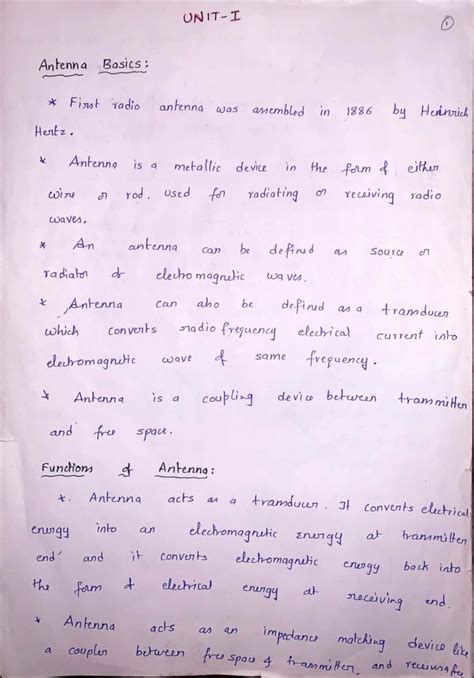 UNIT-I
1
Antenna Basics:
* First radio antenna was assembled in 1886 by Heinrich
Hertz.
* Antenna is a metallic device in the form of either
wire or rod, used for radiating or receiving radio
waves.
* An antenna can be defined as source or
radiator of electromagnetic waves.
* Antenna can also be defined as a transducer
which converts radio frequency electrical current into
electromagnetic wave of same frequency.
* Antenna is a coupling device between transmitter
and free space.
Functions of Antenna:
*. Antenna acts as a transducer. It converts electrical
energy into an electromagnetic energy at transmitter
end and it converts electromagnetic energy back into
the form of electrical energy at receiving end.
* Antenna acts as an impedance matching device like
a coupler between free space & transmitter, and